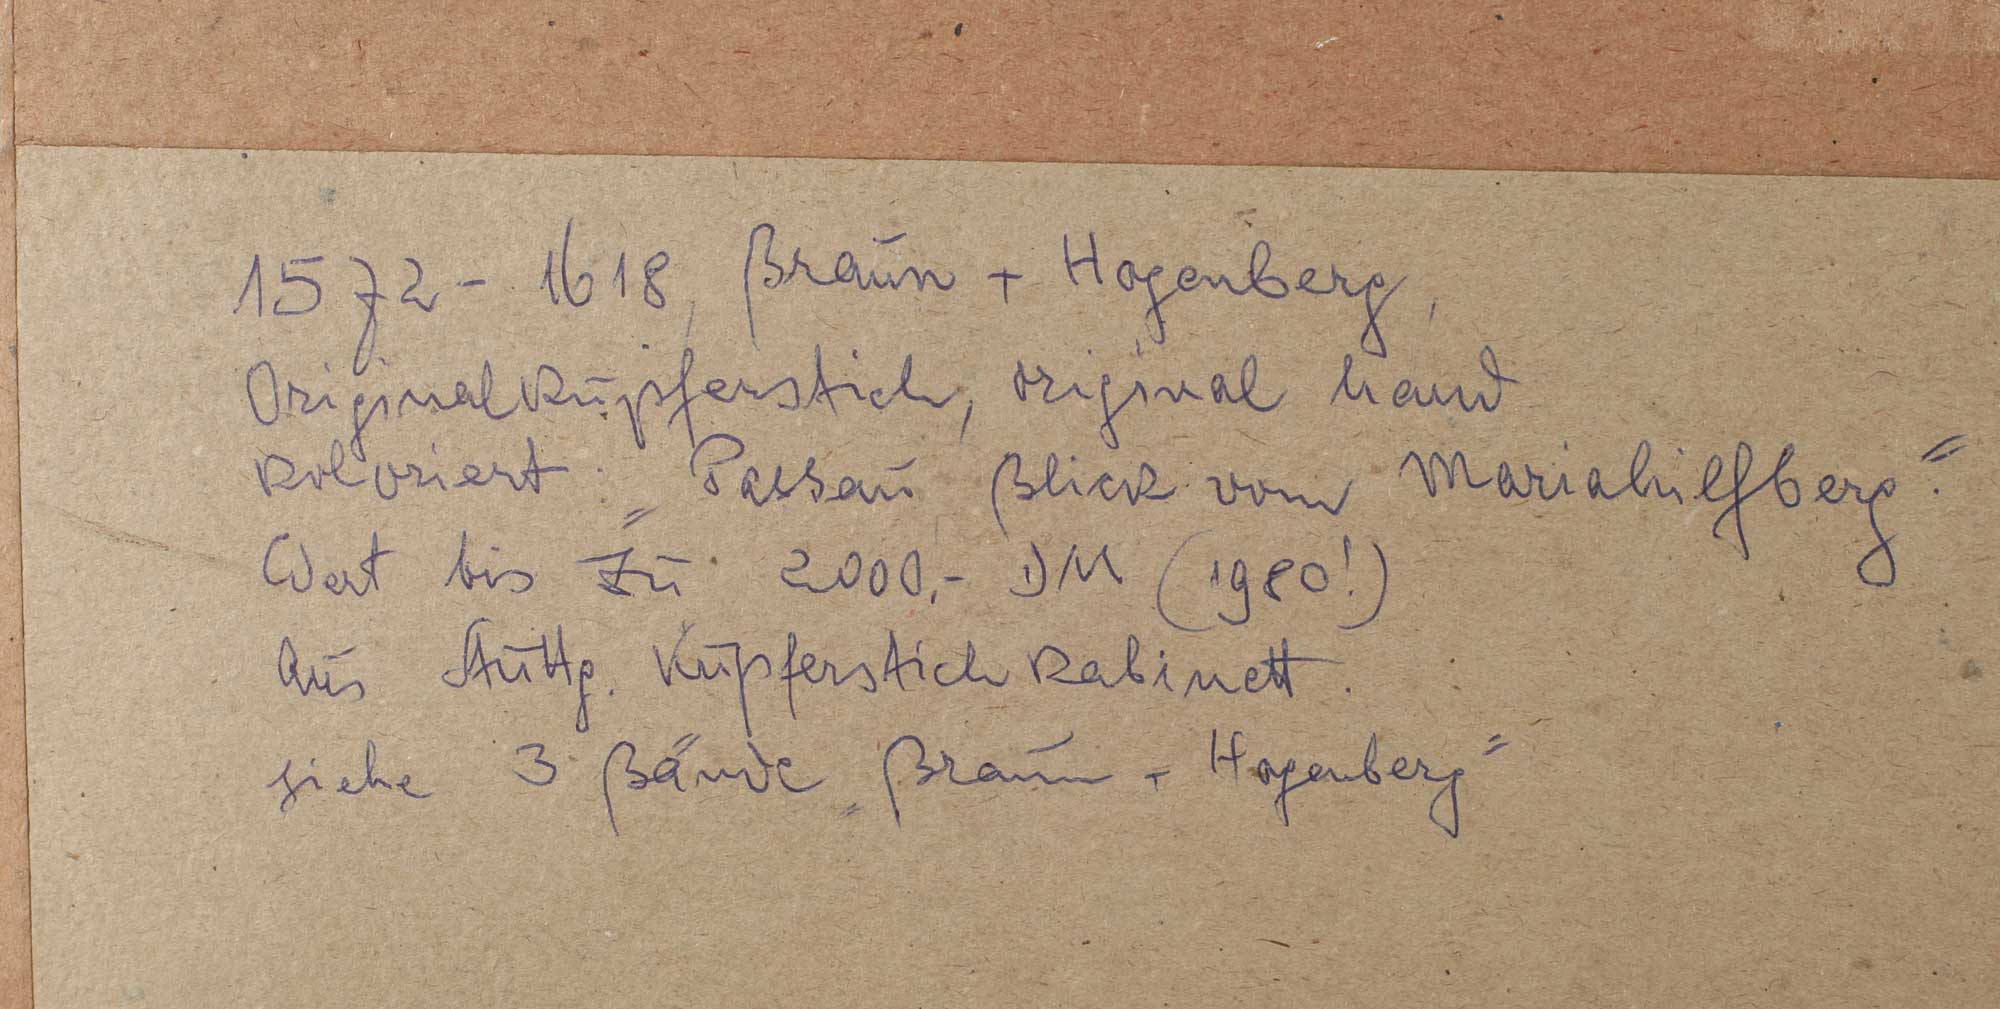 1572 - 1618, Braun + Hogenberg,
Originalkupferstich, original hand
koloriert. „Passau Blick vom Mariahilfberg".
Wert bis zu 2000,- DM (1980!)
Aus Stuttg. Kupferstichkabinett.
siehe 3 Bände „Braun + Hogenberg"